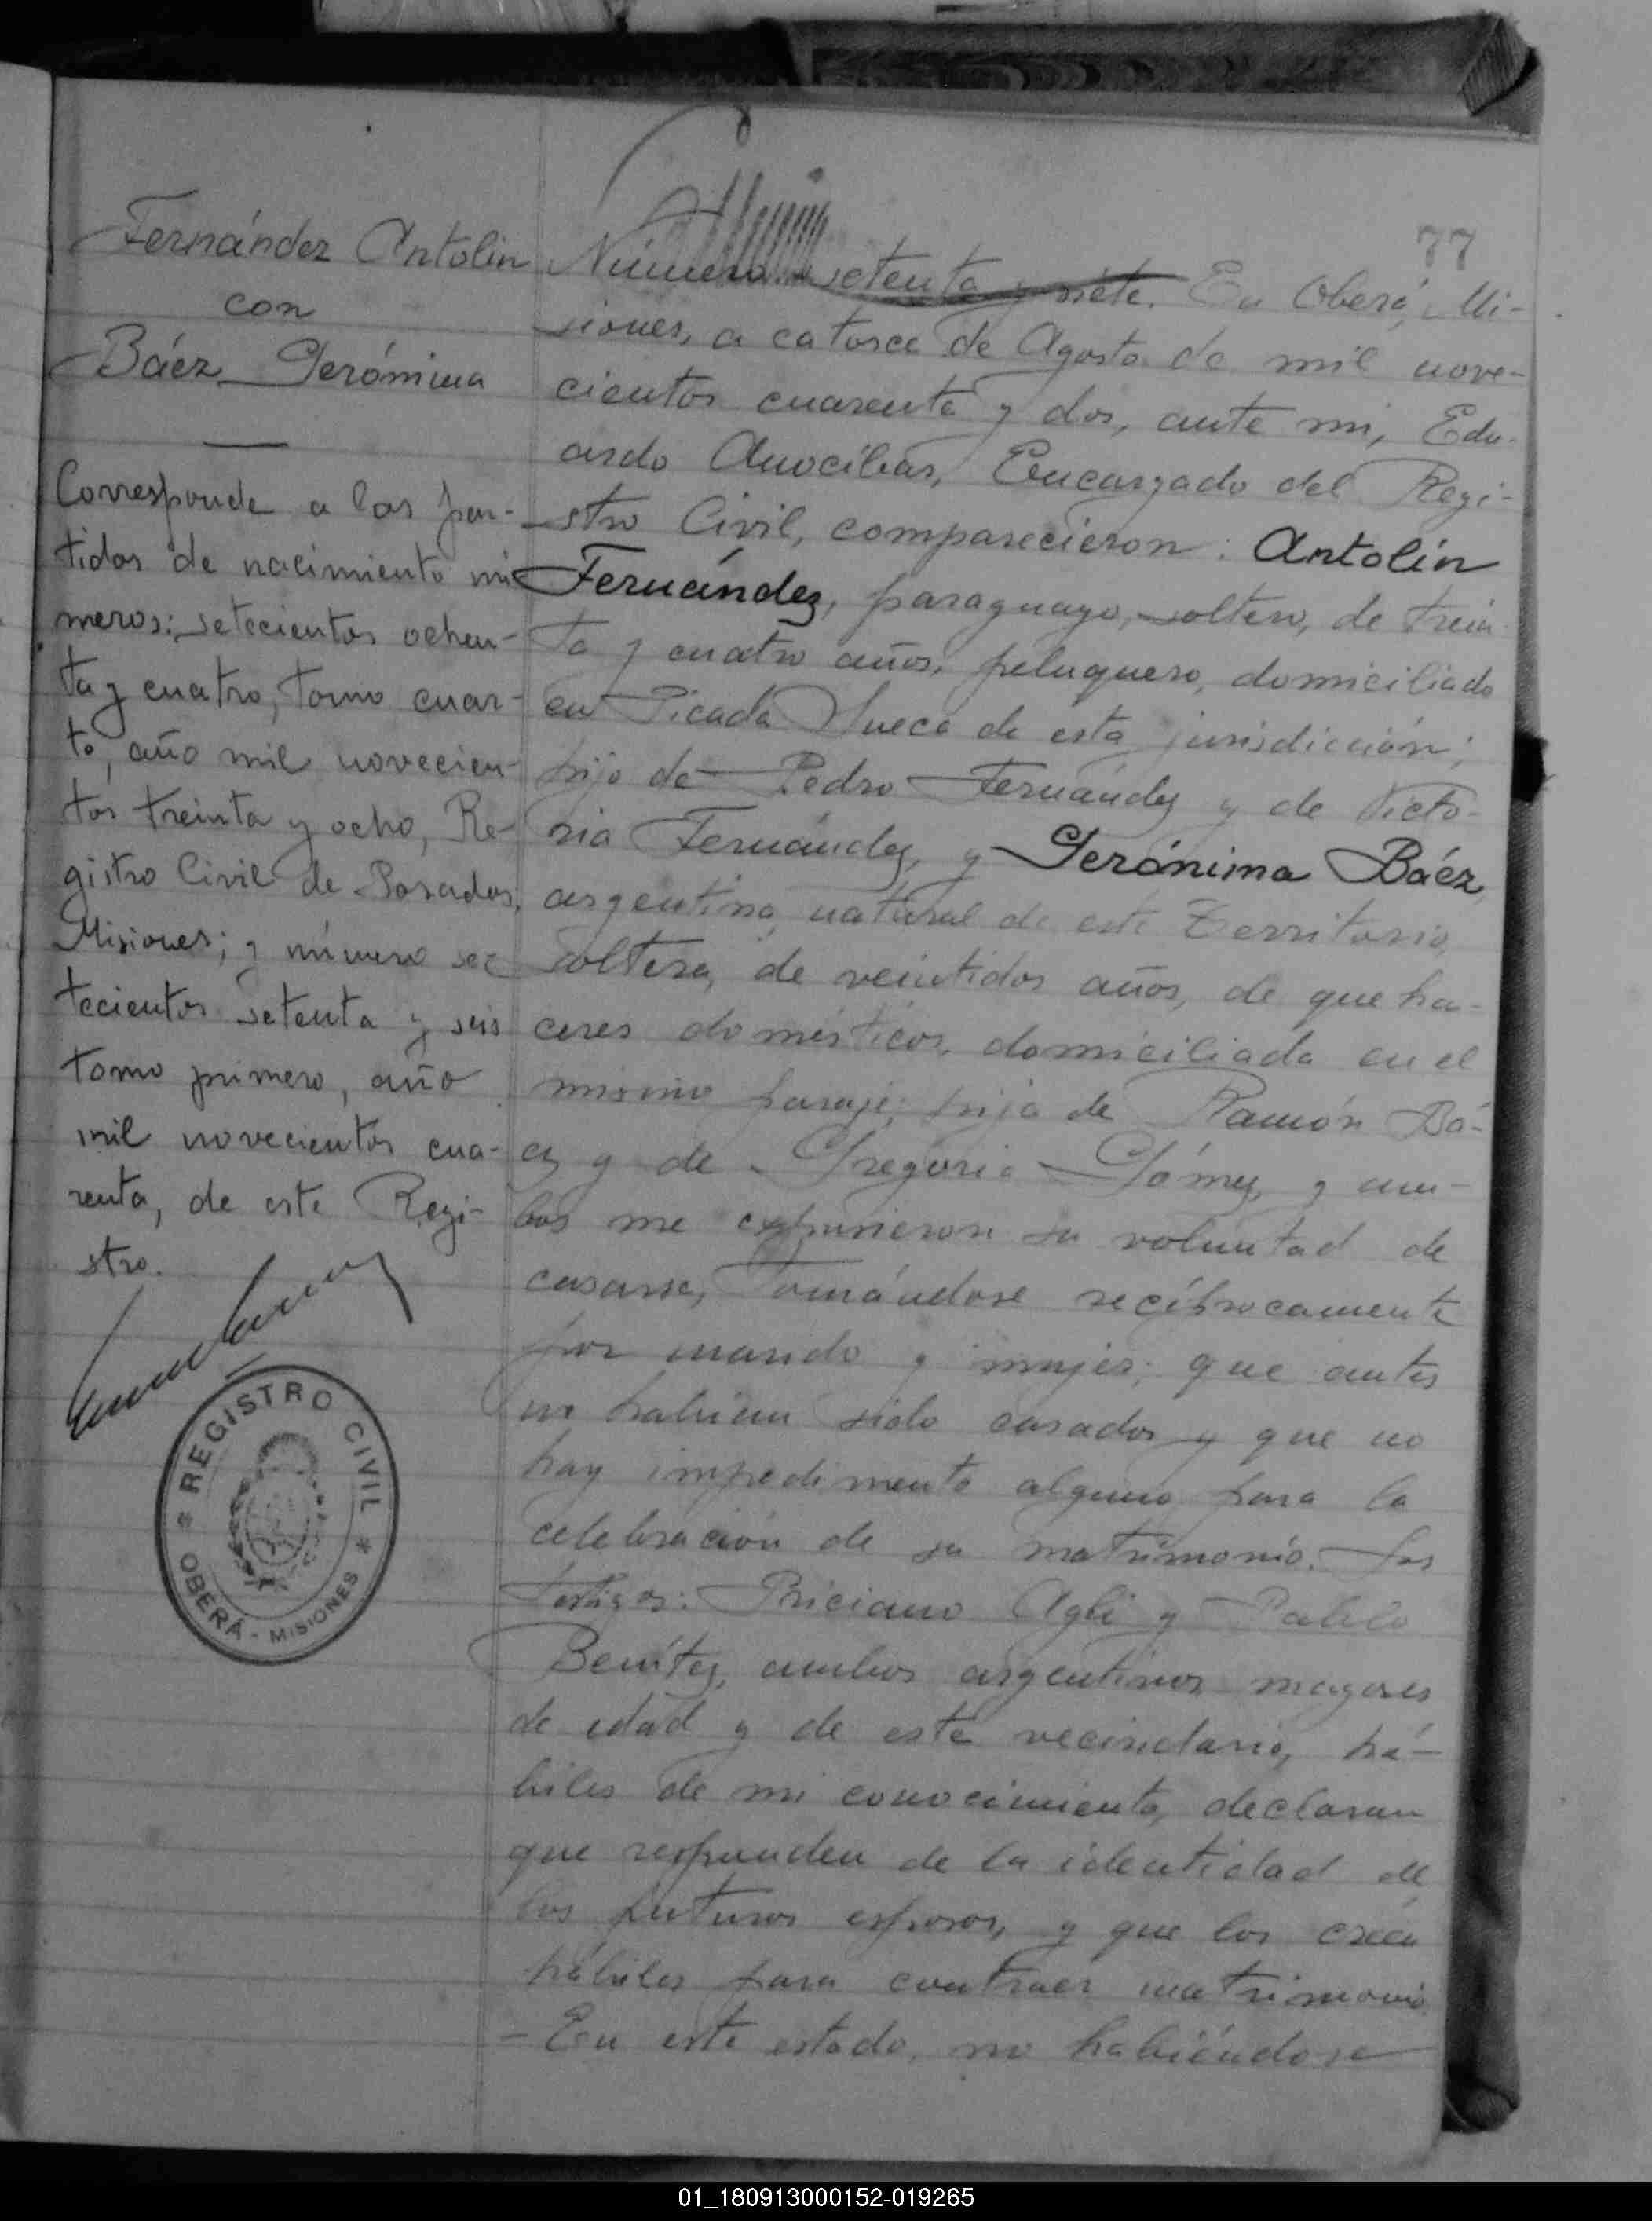 77
Fernández Antolin
con
Báez Gerónima
Corresponde a las par-
tidas de nacimiento nú
meros: setecientos ochen-
ta y cuatro, tomo cuar-
to, año mil novecien-
tos treinta y ocho, Re-
gistro Civil de Posadas,
Misiones; y número se
tecientos setenta y seis
tomo primero, año
mil novecientos cua-
renta, de este Regi-
stro.
REGISTRO CIVIL
OBERÁ - MISIONES
Número setenta y siete. En Oberá, Mi-
siones, a catorce de Agosto de mil nove-
cientos cuarenta y dos, ante mi, Edu-
ardo Encargado del Regi-
stro Civil, comparecieron: Antolín
Fernández, paraguayo, soltero, de trein
ta y cuatro años, peluquero, domiciliado
en Picada Sueca de esta jurisdicción;
hijo de Pedro Fernández y de Victo-
ria Fernández, y Gerónima Báez,
argentina, natural de este Territorio,
soltera, de veintidos años, de que ha-
ceres domésticos, domiciliada en el
mismo paraje; hija de Ramón Bá-
ez y de Gregoria Gómez, y am-
bos me expusieron su voluntad de
casarse, tomándose recíprocamente
por marido y mujer; que antes
no habían sido casados y que no
hay impedimento alguno para la
celebración de su matrimonio. Los
testigos: Priciano y Pablo
Benítez, ambos argentinos mayores
de edad y de este vecindario, há-
biles de mi conocimiento, declaran
que responden de la identidad de
los futuros esposos, y que los créen
hábiles para contraer matrimonio.
- En este estado, no habiéndose
01_180913000152-019265